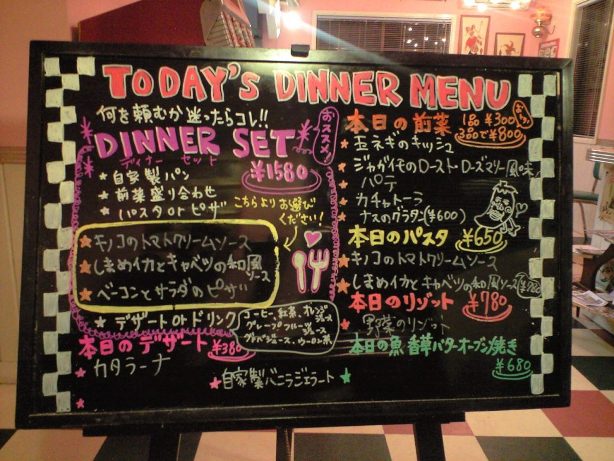 TODAY'S DINNER MENU
何を頼むか迷ったらコレ!!
DINNER SET
ディナー セット
おススメ!
¥1580
★自家製パン
★前菜盛り合わせ
★パスタ or ピザ
こちらよりお選び
ください!
★キノコのトマトクリームソース
★しまめイカとキャベツの和風
ソース
★ベーコンとサラダのピザ
★デザート or ドリンク
コーヒー、紅茶、オレンジ
ジュース
グレープフルーツ
ジュース
グァバジュース、ウーロン茶
本日のデザート ¥380
★カタラーナ
★自家製バニラジェラート★
本日の前菜 1品¥300
3品で¥800
★玉ネギのキッシュ
ジャガイモのロースト・ローズマリー風味
パテ
カチャトーラ
ナスのグラタン(¥600)
本日のパスタ ¥650
★キノコのトマトクリームソース
★しまめイカとキャベツの和風ソース
本日のリゾット ¥780
★野菜のリゾット
本日の魚 香草バターオーブン焼き
¥680